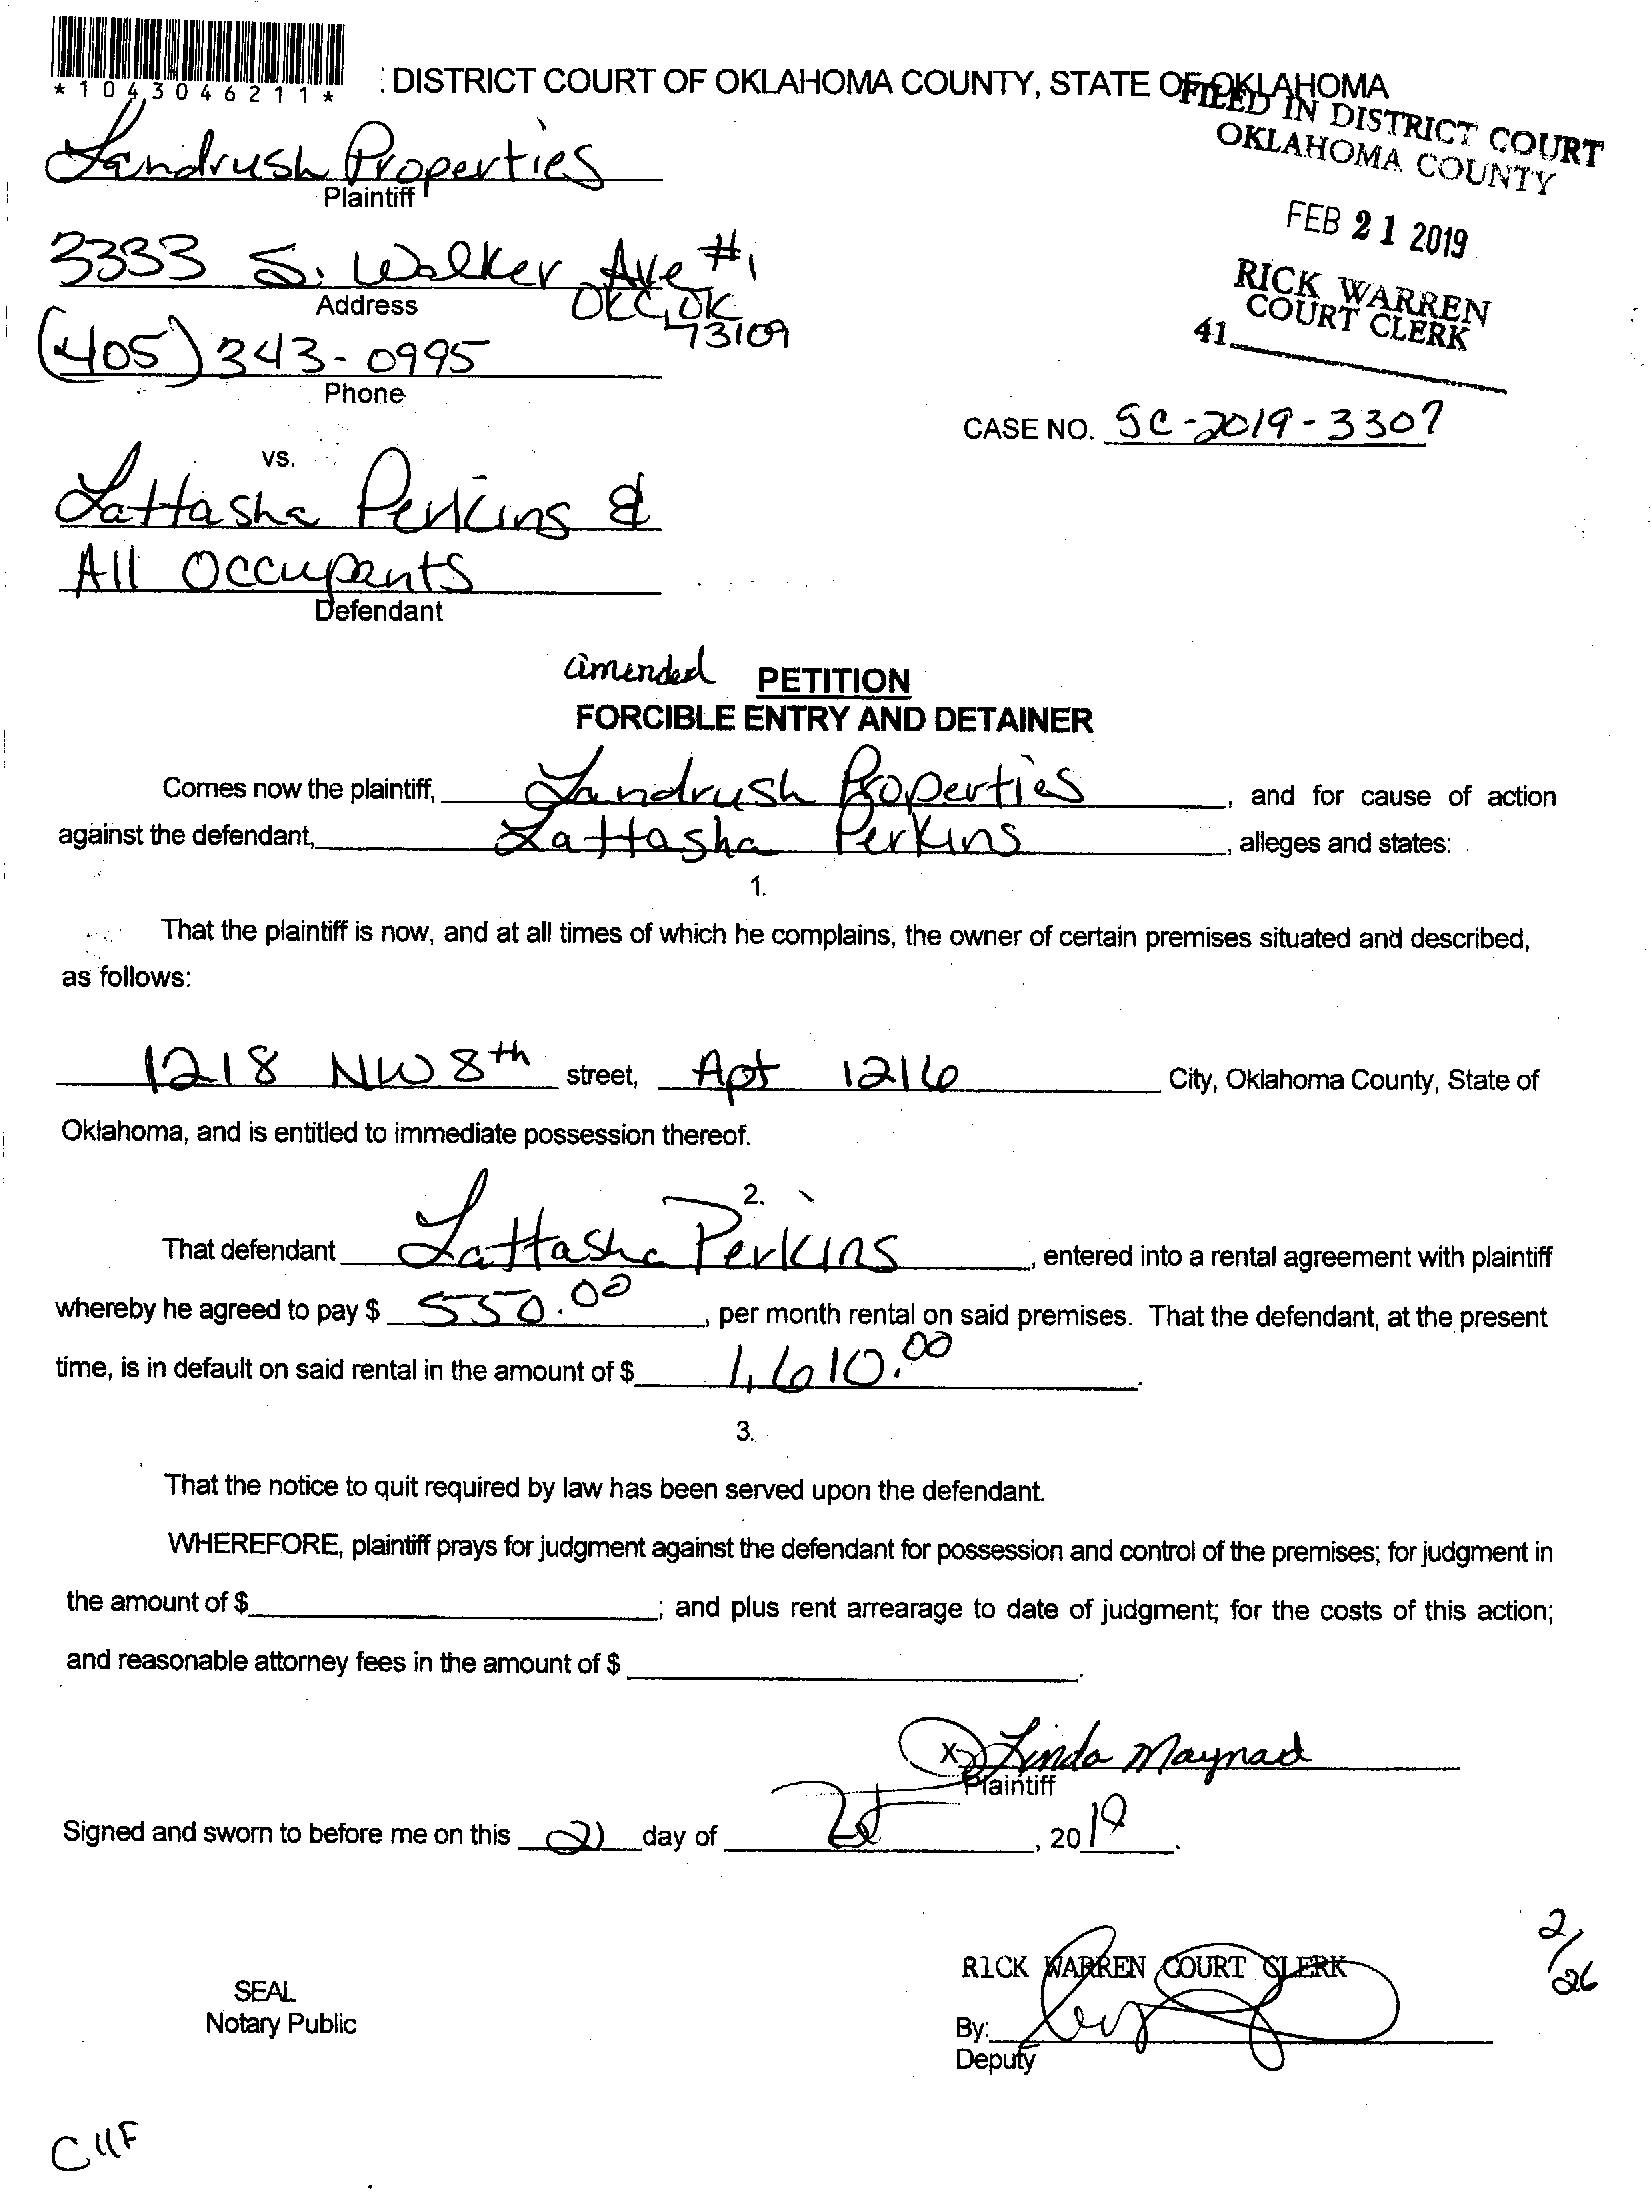 *1043046211*
DISTRICT COURT OF OKLAHOMA COUNTY, STATE OF OKLAHOMA
FILED IN DISTRICT COURT
OKLAHOMA COUNTY
FEB 21 2019
RICK WARREN
COURT CLERK
41
Landrush Properties
Plaintiff
3333 S. Walker Ave #1
OKC, OK
73109
Address
(405) 343-0995
Phone
CASE NO. SC-2019-3307
vs.
Lattasha Perkins &
All Occupants
Defendant
amended PETITION
FORCIBLE ENTRY AND DETAINER
Comes now the plaintiff, Landrush Properties, and for cause of action
against the defendant, Lattasha Perkins, alleges and states:
1.
That the plaintiff is now, and at all times of which he complains, the owner of certain premises situated and described,
as follows:
1218 NW 8th street, Apt 1216 City, Oklahoma County, State of
Oklahoma, and is entitled to immediate possession thereof.
2.
That defendant Lattasha Perkins, entered into a rental agreement with plaintiff
whereby he agreed to pay $ 550.00, per month rental on said premises. That the defendant, at the present
time, is in default on said rental in the amount of $ 1,610.00.
3.
That the notice to quit required by law has been served upon the defendant.
WHEREFORE, plaintiff prays for judgment against the defendant for possession and control of the premises; for judgment in
the amount of $ ; and plus rent arrearage to date of judgment; for the costs of this action;
and reasonable attorney fees in the amount of $ .
X Linda Maynad
Plaintiff
Signed and sworn to before me on this 21 day of , 2019.
2/26
RICK WARREN COURT CLERK
SEAL
Notary Public
By:
Deputy